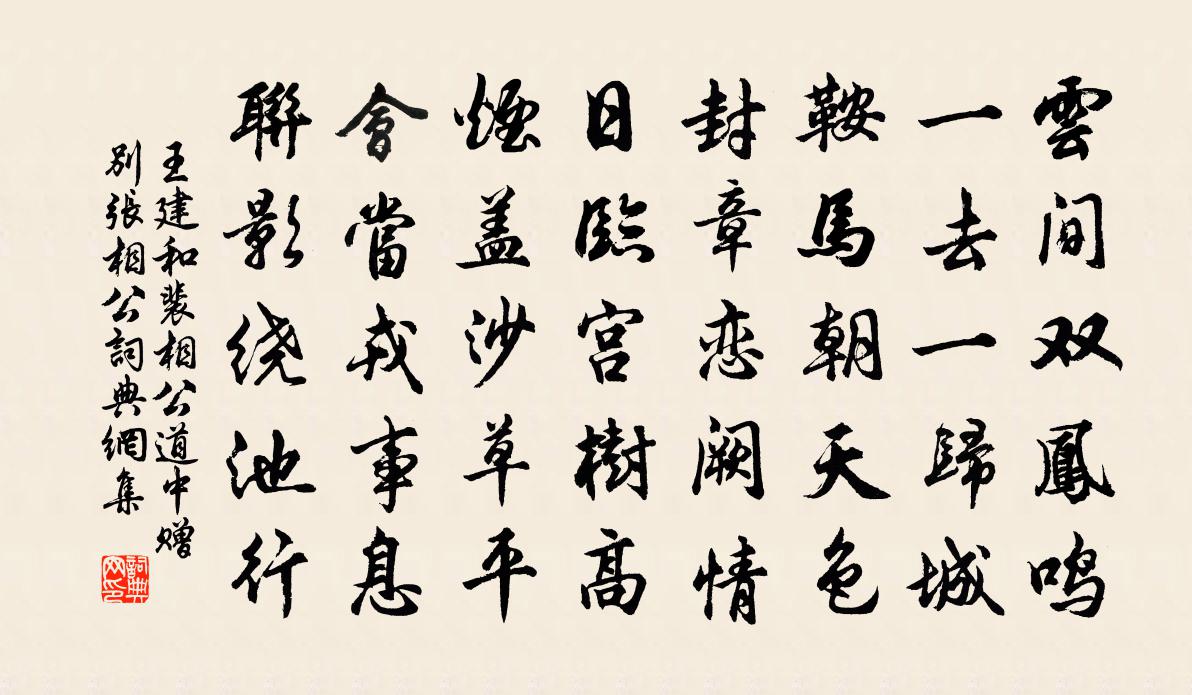 雲间双鳳鸣
一去一歸城
鞍馬朝天色
封章恋阙情
日臨宫樹高
煙盖沙草平
會當戎事息
聯影绕池行
王建和裴相公道中赠
别張相公詞典網集
詞典网印